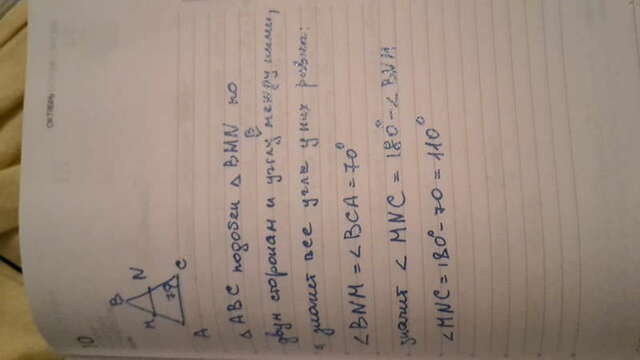 ОКТЯБРЬ
10
B
M N
70
A C
△ABC подобен △BMN по
двум сторонам и углу B между ними,
а значит все углы у них равны:
∠BNM = ∠BCA = 70°
значит ∠ MNC = 180° - ∠ BNM
∠MNC = 180° - 70 = 110°